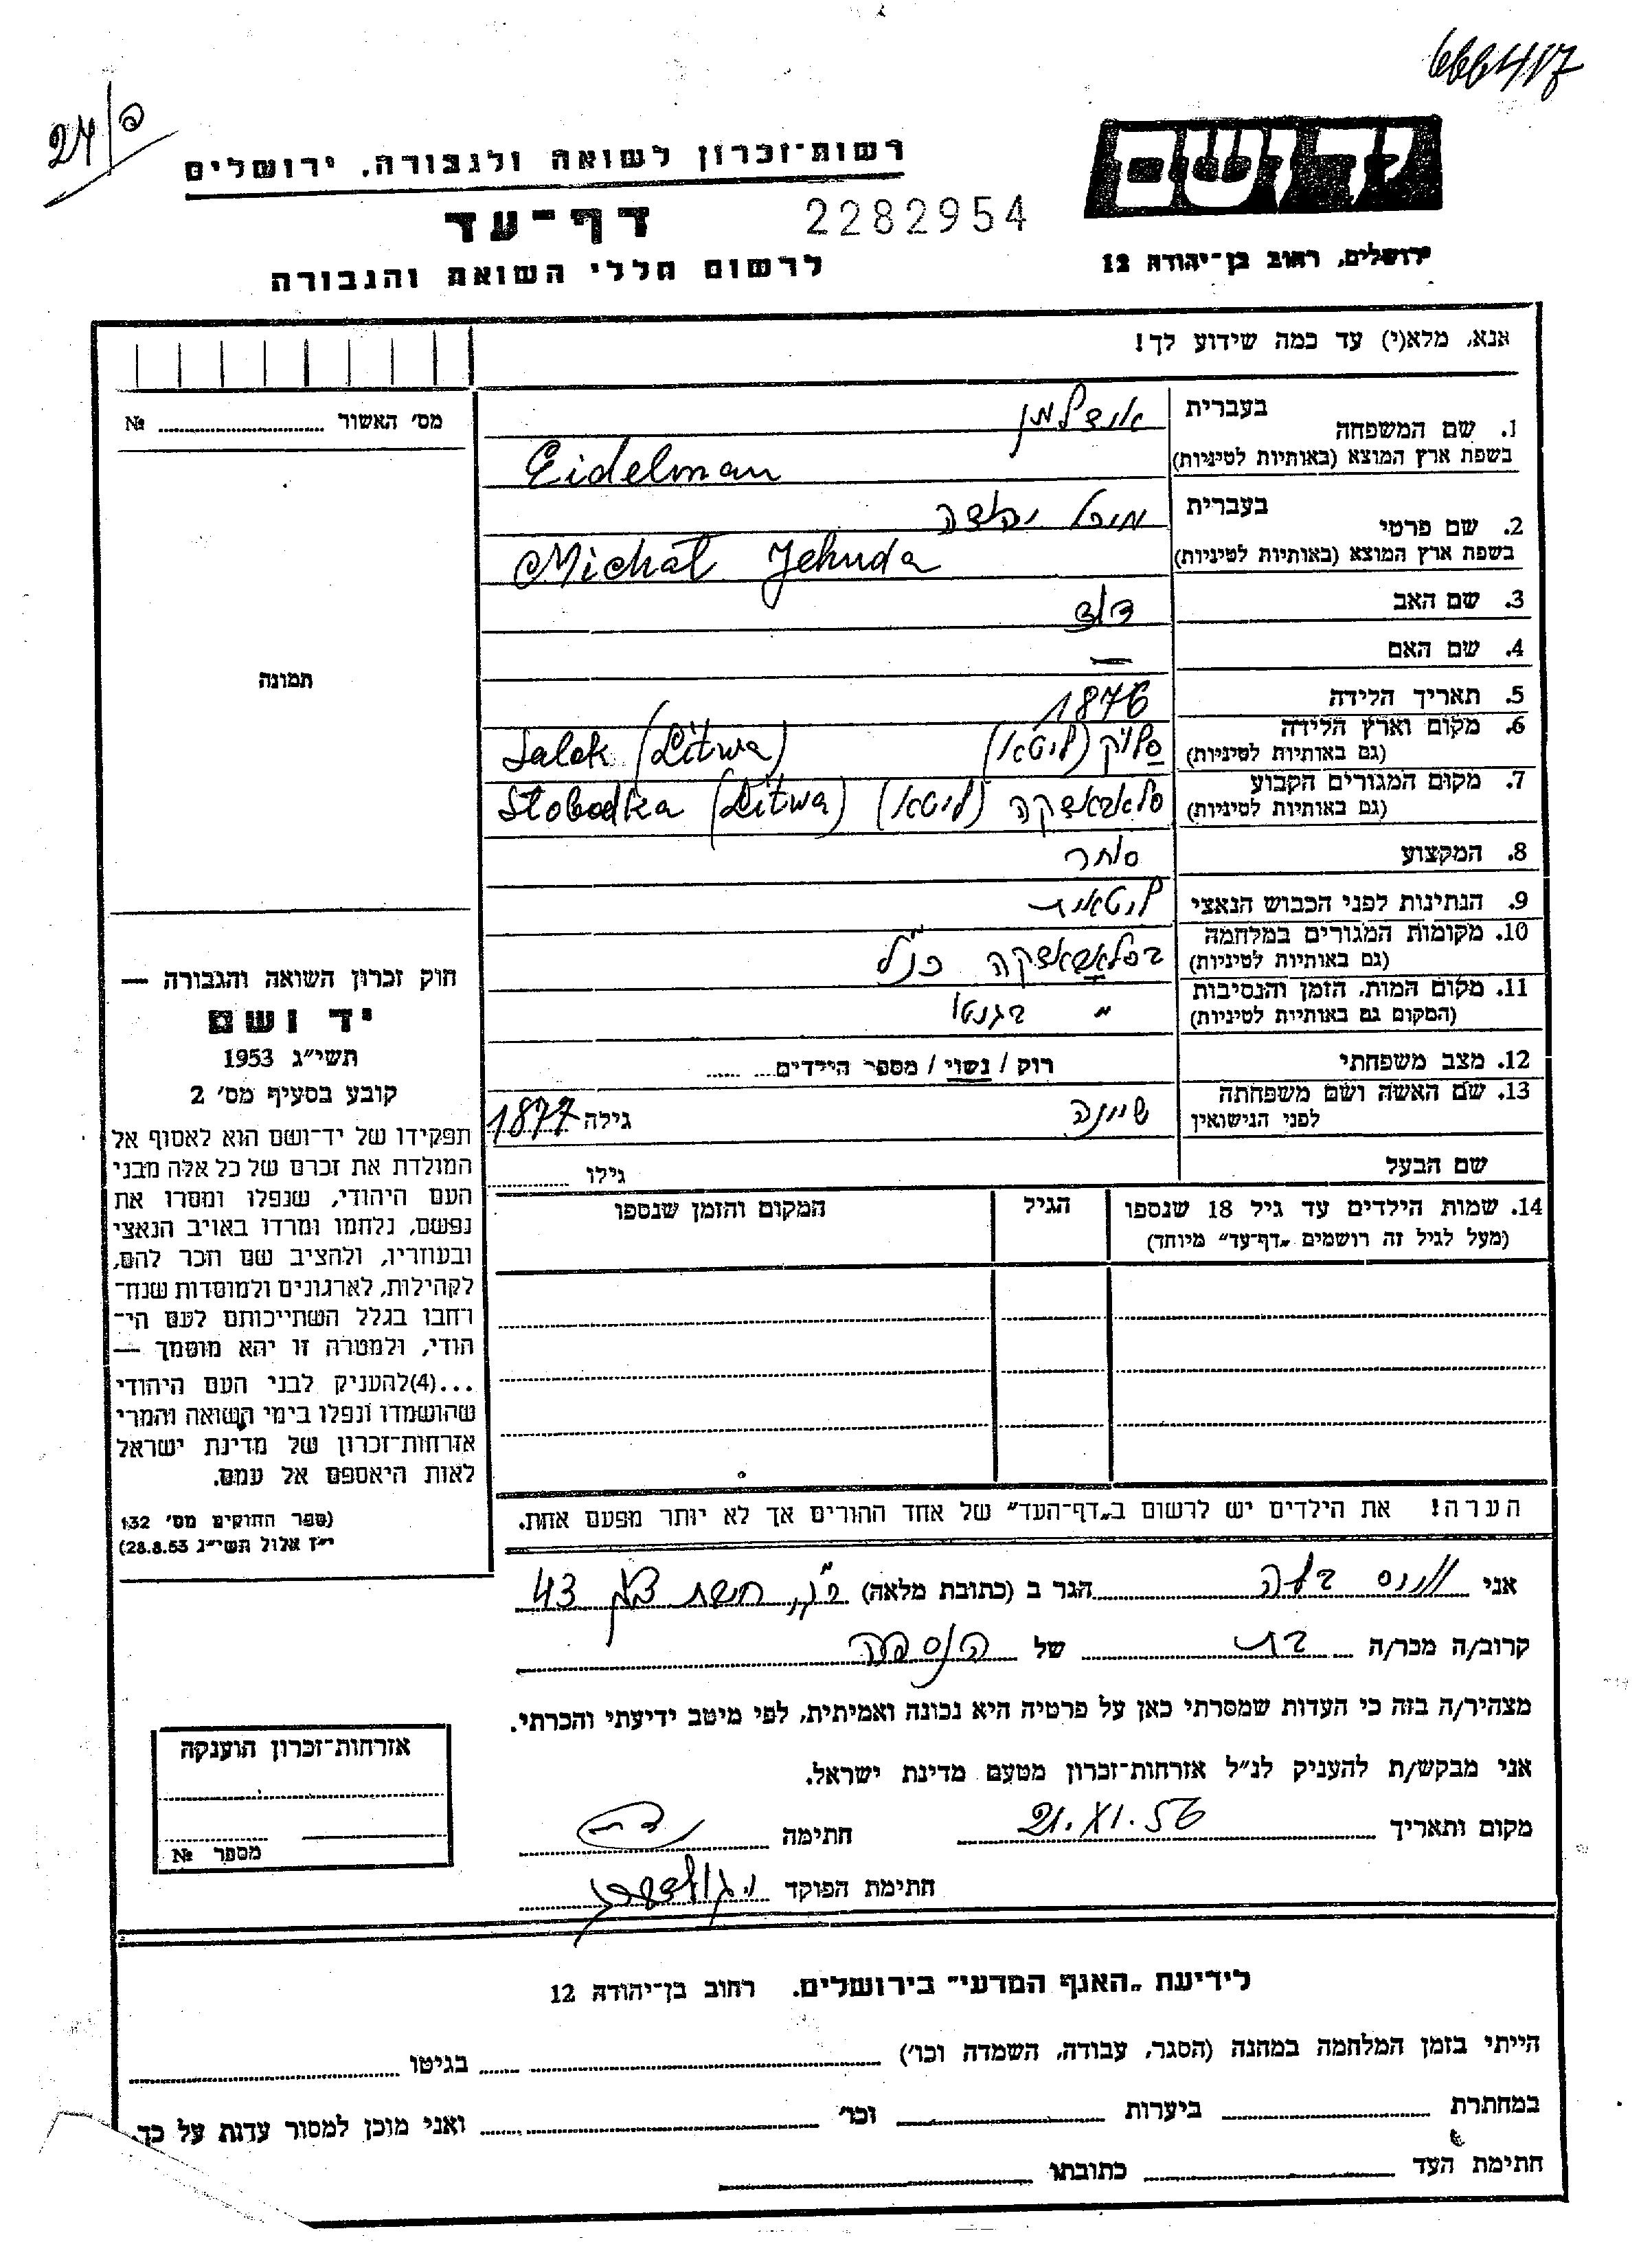 666417
24/פ
יד ושם
רשות־זכרון לשואה ולגבורה, ירושלים
דף־עד
2282954
ירושלים, רחוב בן־יהודה 12
לרשום חללי השואה והגבורה
אנא, מלא(י) עד כמה שידוע לך!
מס׳ האשור № 
1. שם המשפחה
בעברית אידלמן
בשפת ארץ המוצא (באותיות לטיניות) Eidelman
2. שם פרטי
בעברית מיכל יהודה
בשפת ארץ המוצא (באותיות לטיניות) Michał Jehuda
3. שם האב דוד
4. שם האם —
תמונה
5. תאריך הלידה 1876
6. מקום וארץ הלידה
(גם באותיות לטיניות) סלוק (ליטא) Salok (Litwa)
7. מקום המגורים הקבוע
(גם באותיות לטיניות) סלאבאדקה (ליטא) Słobodka (Litwa)
8. המקצוע סוחר
9. הנתינות לפני הכבוש הנאצי ליטאית
10. מקומות המגורים במלחמה
(גם באותיות לטיניות) בסלאבאדקה כנ״ל
11. מקום המות, הזמן והנסיבות
(המקום גם באותיות לטיניות) ״ בגטו
12. מצב משפחתי רוק / נשוי / מספר הילדים
13. שם האשה ושם משפחתה
לפני הנישואין שיינה גילה 1877
שם הבעל גילו
14. שמות הילדים עד גיל 18 שנספו הגיל המקום והזמן שנספו
(מעל לגיל זה רושמים „דף־עד״ מיוחד)
הערה! את הילדים יש לרשום ב„דף־העד״ של אחד ההורים אך לא יותר מפעם אחת.
חוק זכרון השואה והגבורה —
יד ושם
תשי״ג 1953
קובע בסעיף מס׳ 2
תפקידו של יד־ושם הוא לאסוף אל
המולדת את זכרם של כל אלה מבני
העם היהודי, שנפלו ומסרו את
נפשם, נלחמו ומרדו באויב הנאצי
ובעוזריו, ולהציב שם וזכר להם,
לקהילות, לארגונים ולמוסדות שנח־
רחבו בגלל השתייכותם לעם הי־
הודי, ולמטרה זו יהא מוסמך —
...(4)להעניק לבני העם היהודי
שהושמדו ונפלו בימי השואה והמרי
אזרחות־זכרון של מדינת ישראל
לאות היאספם אל עמם.
(ספר החוקים מס׳ 132
י״ז אלול תשי״ג 28.8.53)
אני בלה הגר ב (כתובת מלאה) 43
קרוב/ה מכר/ה בת של הנספה
מצהיר/ה בזה כי העדות שמסרתי כאן על פרטיה היא נכונה ואמיתית, לפי מיטב ידיעתי והכרתי.
אני מבקש/ת להעניק לנ״ל אזרחות־זכרון מטעם מדינת ישראל.
מקום ותאריך 21.XI.56 חתימה
חתימת הפוקד
אזרחות־זכרון הוענקה
מספר №
לידיעת „האגף המדעי״ בירושלים. רחוב בן־יהודה 12
הייתי בזמן המלחמה במחנה (הסגר, עבודה, השמדה וכו׳) בגיטו
במחתרת ביערות וכו׳ ואני מוכן למסור עדות על כך.
חתימת העד כתובתו